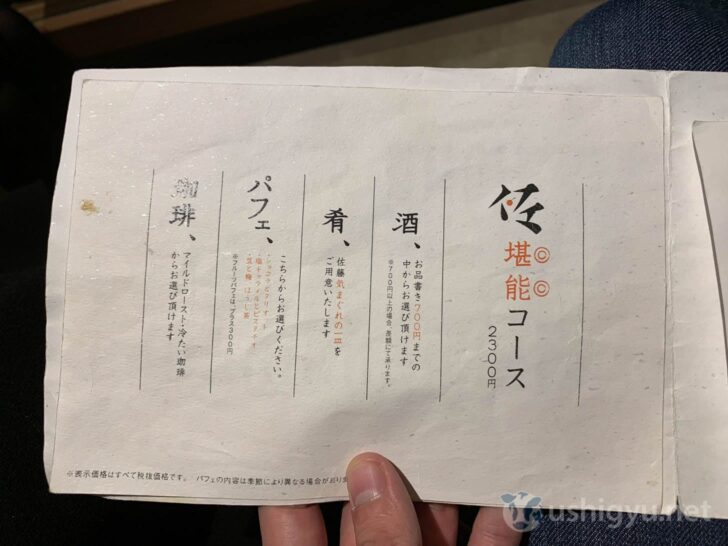 佐
堪能コース
◎◎
2300円
酒、
お品書き700円までの
中からお選び頂けます
※700円以上の場合、差額にて承ります。
肴、
佐藤気まぐれの一皿を
ご用意いたします
パフェ、
こちらからお選びください。
・塩キャラメルとピスタチオ
・豆と梅、ほうじ茶
※フルーツパフェは、プラス300円
珈琲、
マイルドロースト・冷たい珈琲
からお選び頂けます
※表示価格はすべて税抜価格です。 パフェの内容は季節により異なる場合があり
ushigyu.net